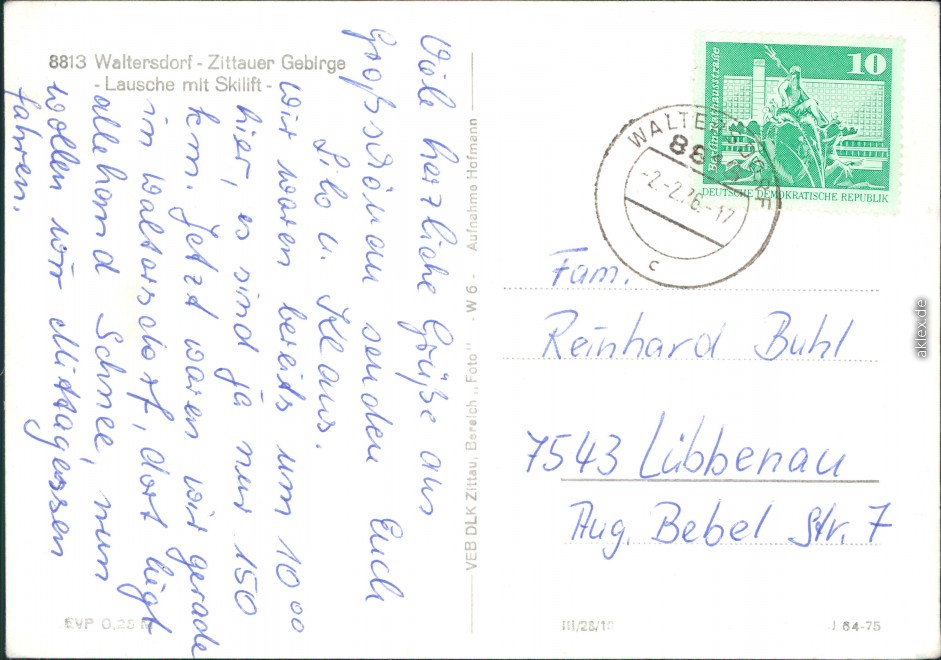 8813 Waltersdorf - Zittauer Gebirge
- Lausche mit Skilift -
Viele herzliche Grüße aus
Großschönau senden Euch
Silo u. Klaus.
Wir waren bereits um 10⁰⁰
hier, es sind ja nur 150
km. Jetzt waren wir gerade
in Waltersdorf, dort liegt
allerhand Schnee, nun
wollen wir Mittagessen
fahren.
VEB DLK Zittau, Bereich „Foto" - W 6 - Aufnahme Hofmann
10
DEUTSCHE DEMOKRATISCHE REPUBLIK
-2.-2.76.-17
c
Fam.
Reinhard Buhl
7543 Lübbenau
Aug. Bebel Str. 7
EVP 0,25 M
III/28/10
J 64-75
aklex.de